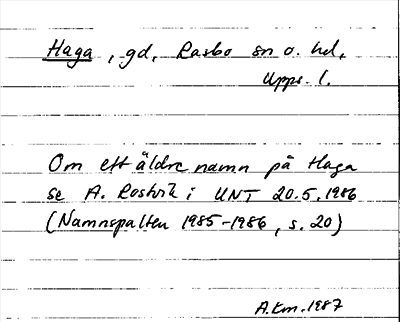 Haga, gd, Rasbo sn o. hd,
Upps. l.
Om ett äldre namn på Haga
se A. Rostvik i UNT 20.5.1986
(Namnspalten 1985-1986, s. 20)
A.Km.1987